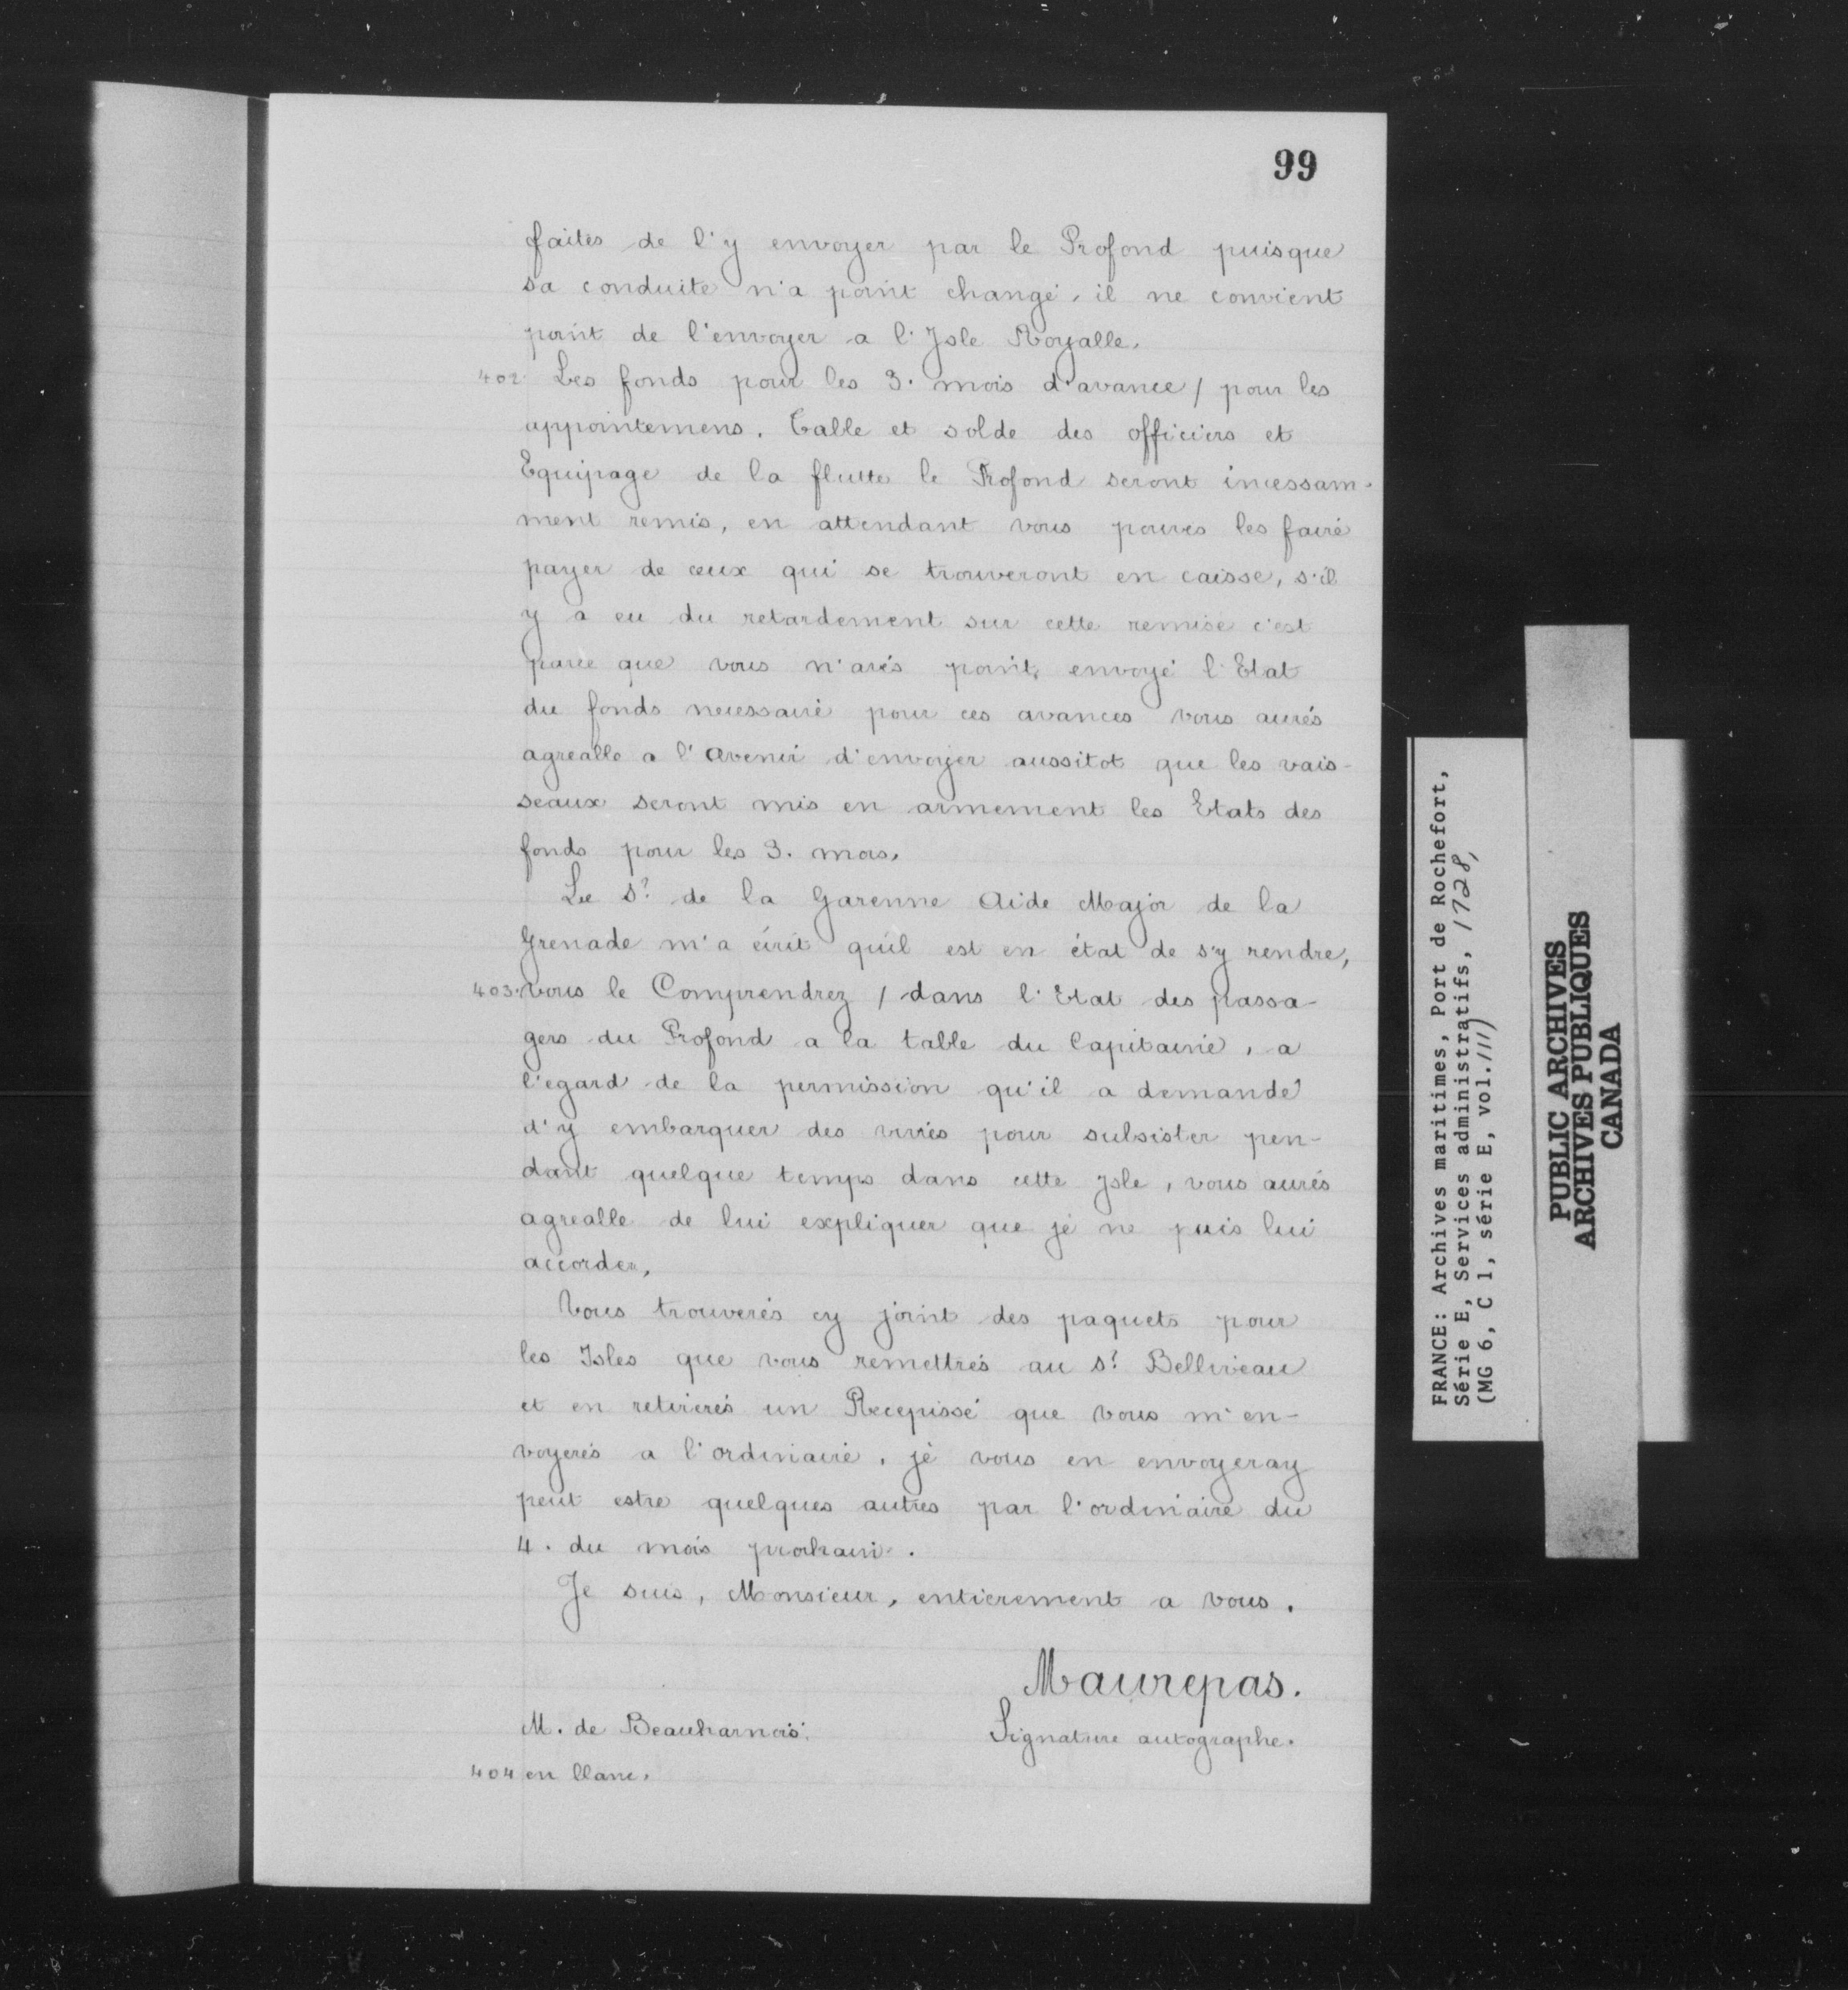 99
faites de l'y envoyer par le Profond puisque
sa conduite n'a point changé, il ne convient
point de l'envoyer a l'Isle Royalle.
402. Les fonds pour les 3. mois d'avance / pour les
appointemens. Table et solde des officiers et
Equipage de la flutte le Profond seront incessam-
ment remis, en attendant vous pouvés les faire
payer de ceux qui se trouveront en caisse, s'il
y a eu du retardement sur cette remise c'est
parce que vous n'avés point envoyé l'Etat
du fonds necessaire pour ces avances vous aurés
agreable a l'Avenir d'envoyer aussitot que les vais-
seaux seront mis en armement les Etats des
fonds pour les 3. mois.
Le Sr. de la Garenne Aide Major de la
Grenade m'a écrit qu'il est en état de s'y rendre,
403. vous le Comprendrez / dans l'Etat des passa-
gers du Profond a la table du Capitaine, a
l'egard de la permission qu'il a demandé
d'y embarquer des vivres pour subsister pen-
dant quelque temps dans cette Isle, vous aurés
agreable de lui expliquer que je ne puis lui
accorder,
Vous trouverés cy joint des paquets pour
les Isles que vous remettrés au Sr. Belliveau
et en retirerés un Recepissé que vous m'en-
voyerés a l'ordinaire. je vous en envoyeray
peut estre quelques autres par l'ordinaire du
4. du mois prochain.
Je suis, Monsieur, entierement a vous.
Maurepas.
M. de Beauharnois.
Signature autographe.
404 en blanc.
FRANCE: Archives maritimes, Port de Rochefort,
Série E, Services administratifs, 1728,
(MG 6, C 1, série E, vol. 111)
PUBLIC ARCHIVES
ARCHIVES PUBLIQUES
CANADA